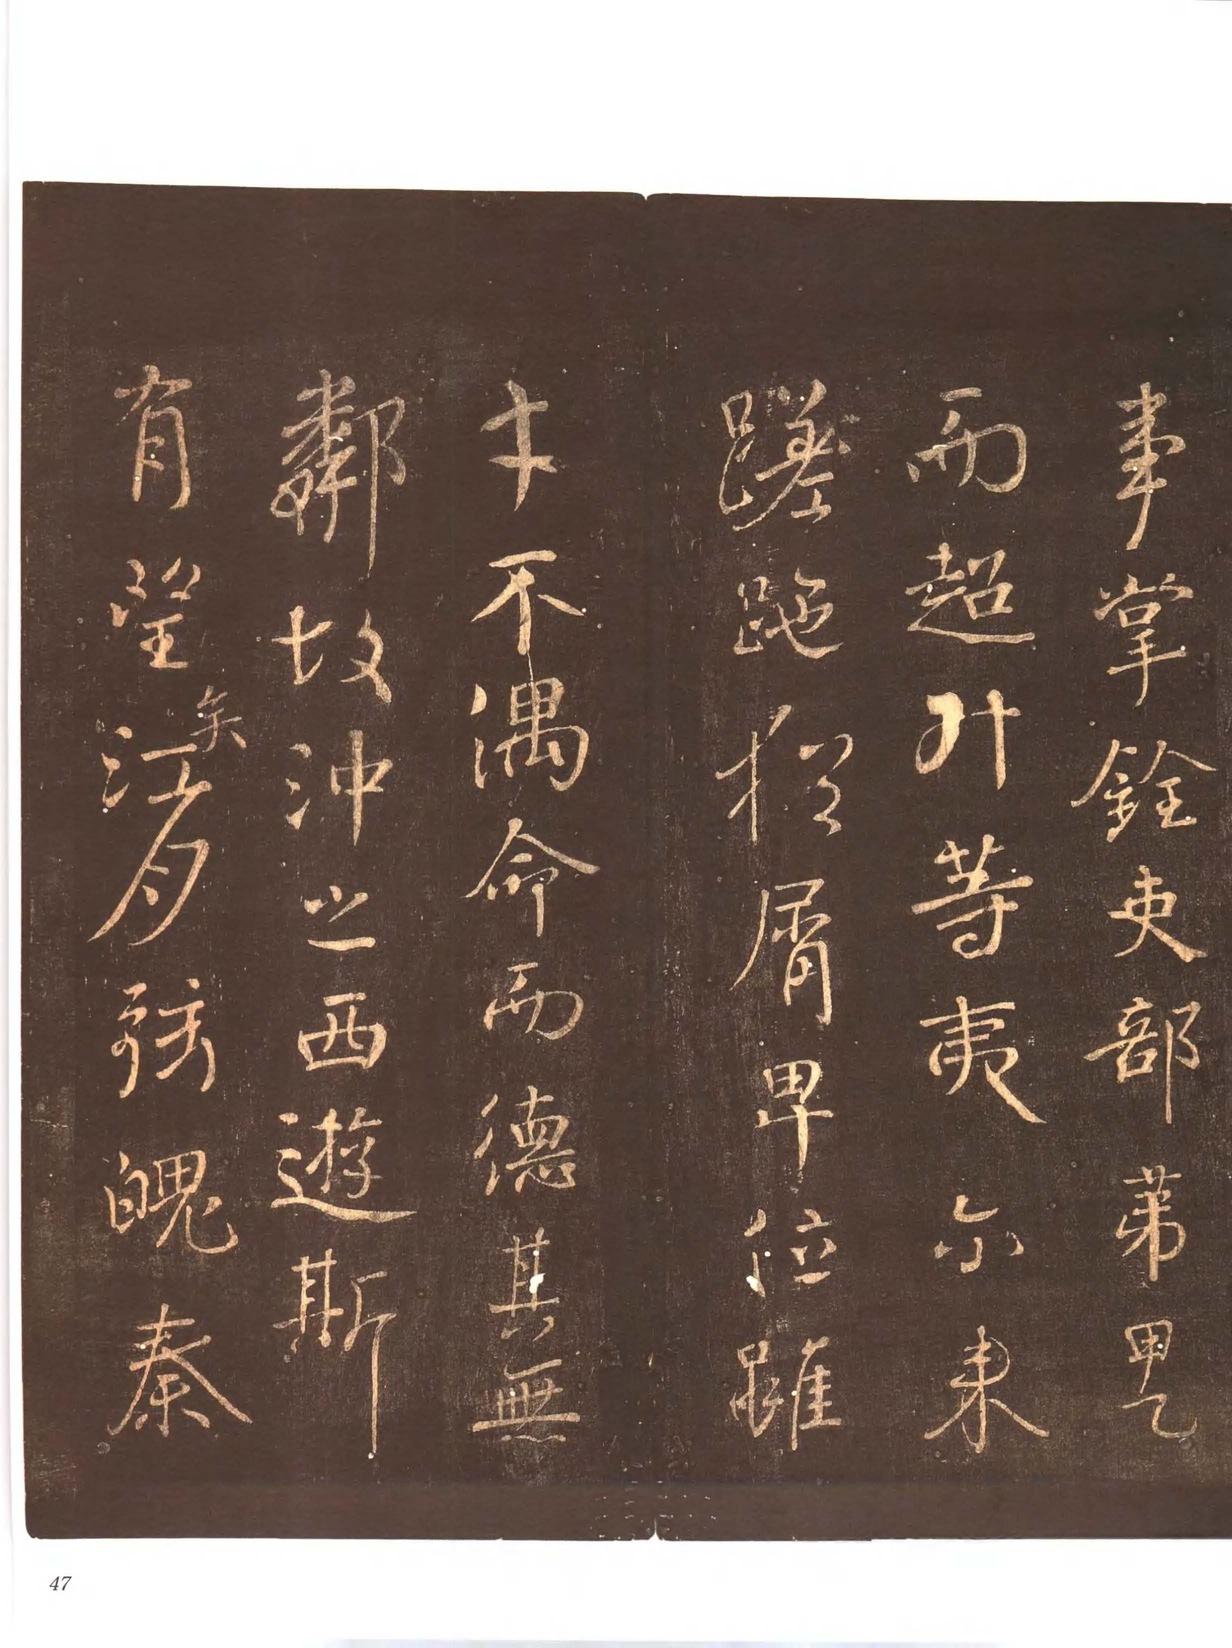 事掌銓吏部第甲乙
而超升等夷尔来
蹉跎猶屑卑位雖
才不偶命而德其無
鄰故沖之西遊斯
有望矣江月弦魄秦
47